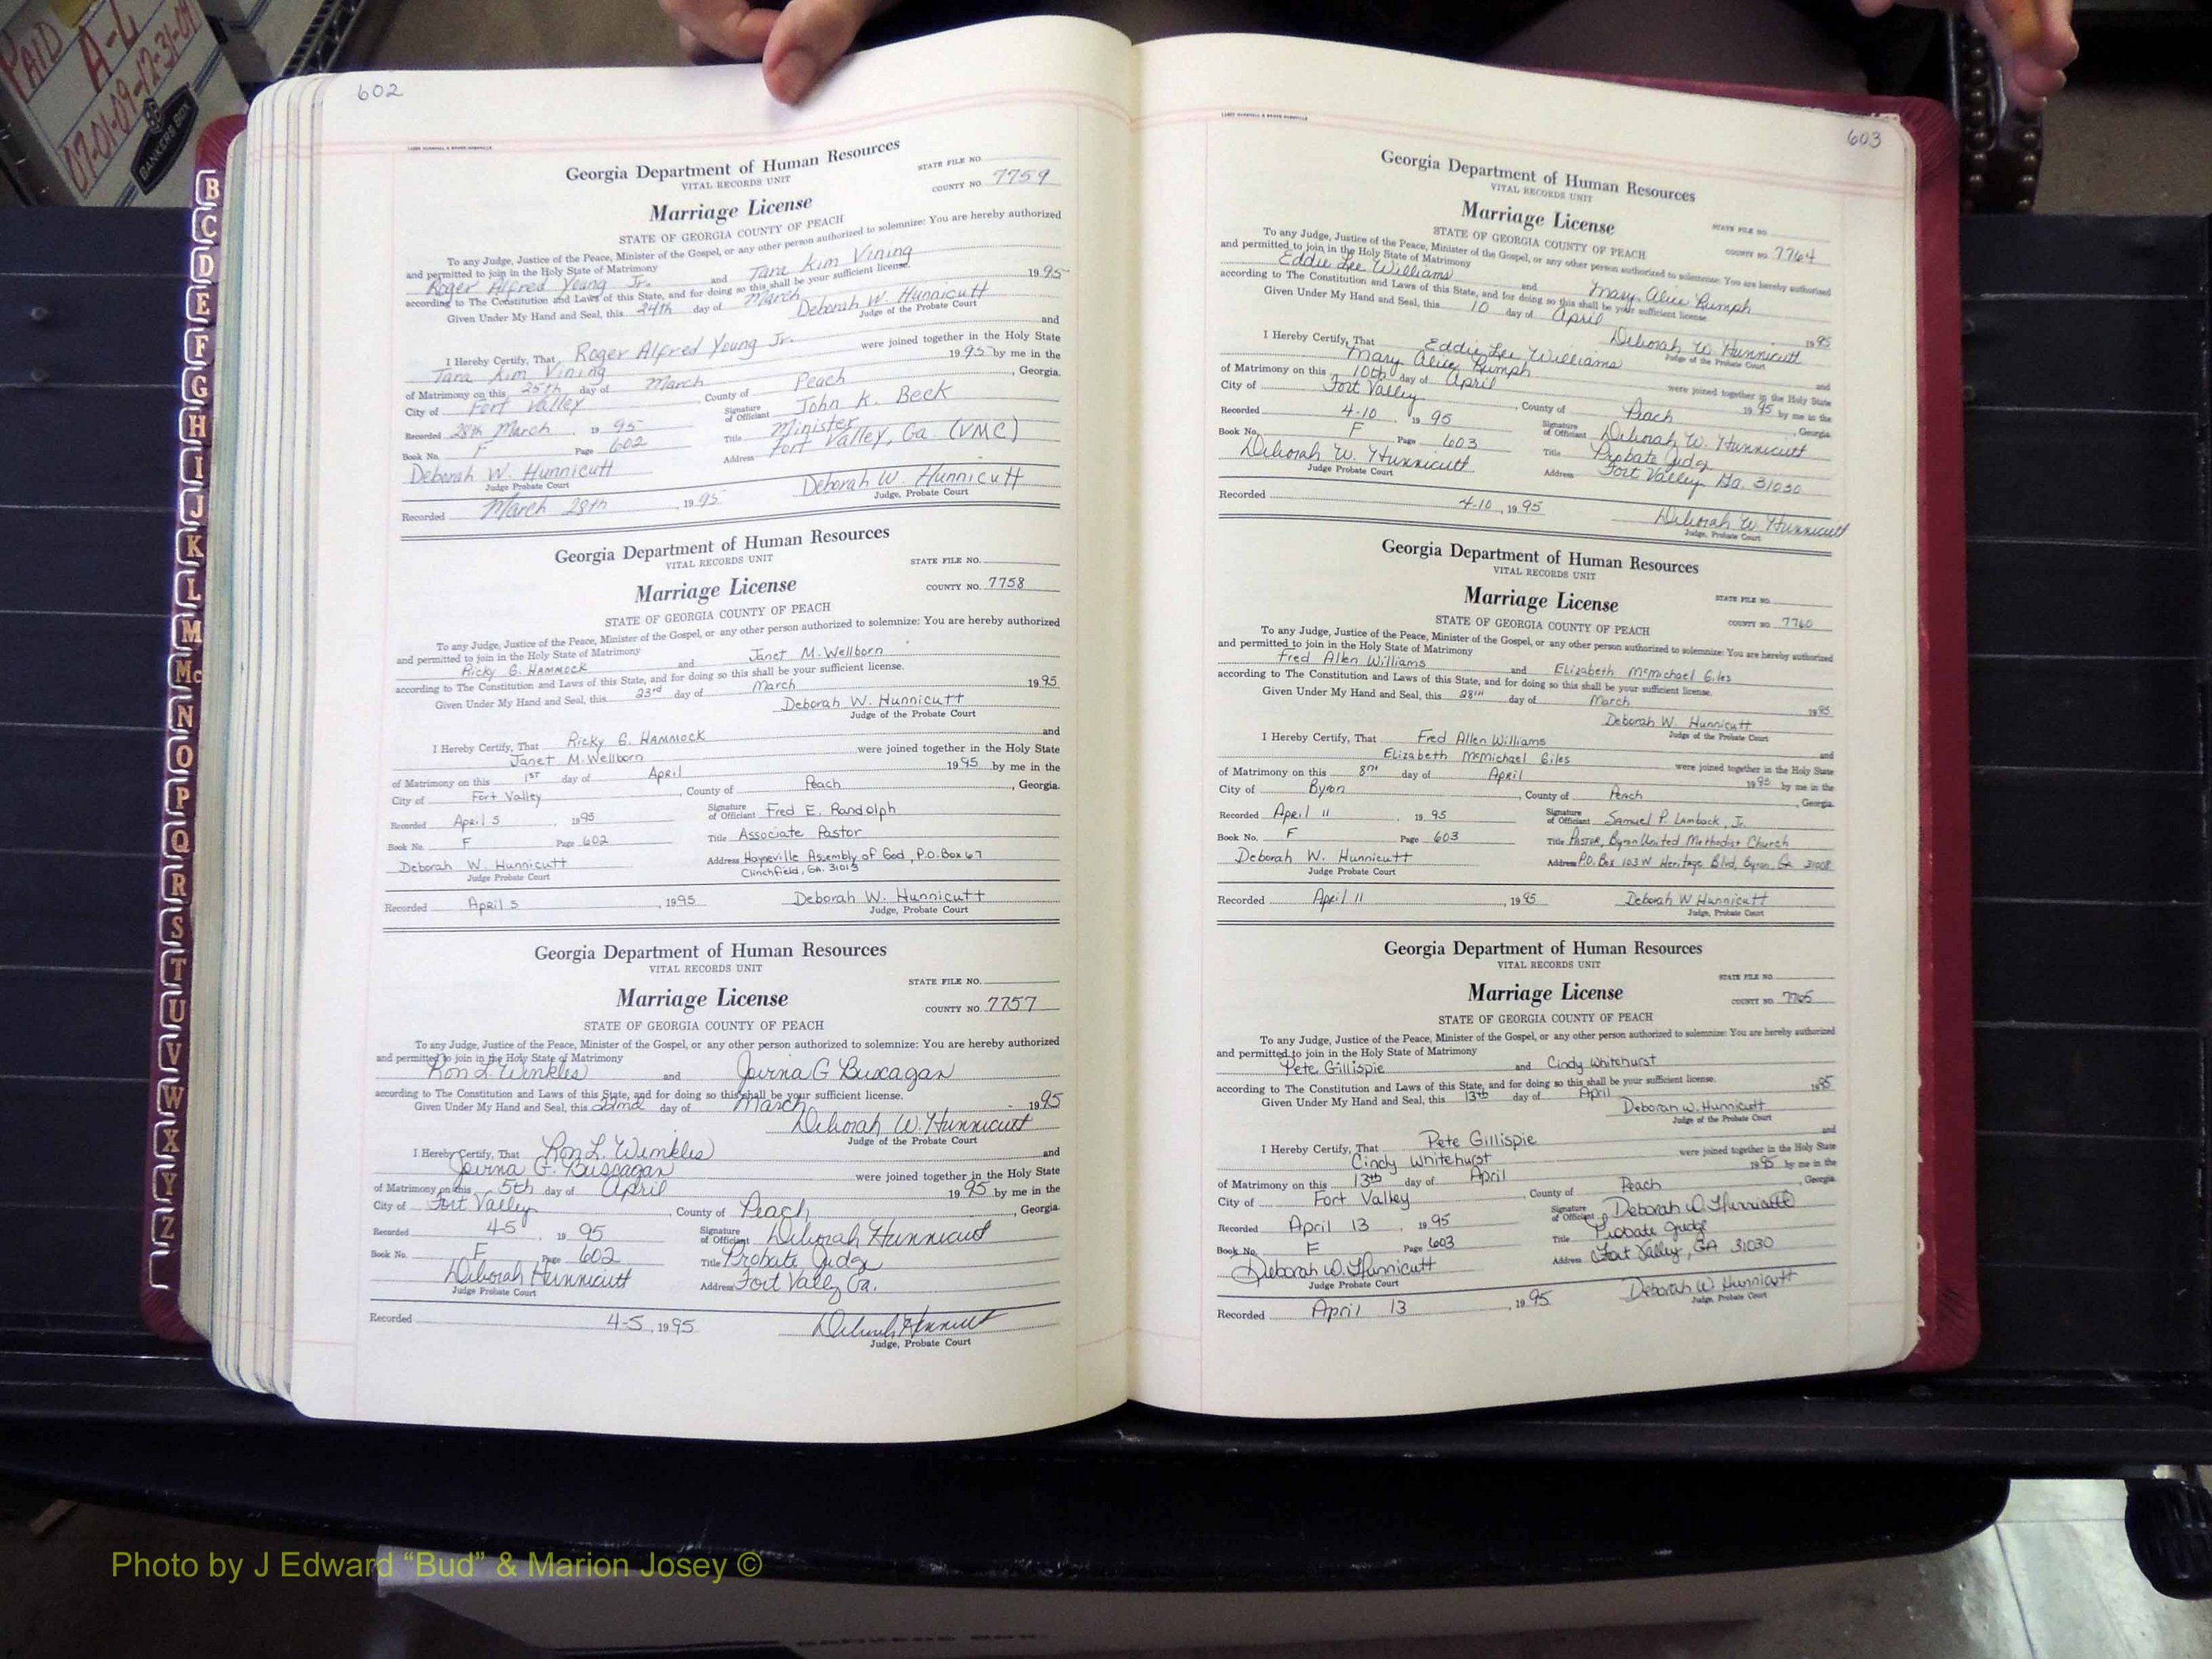 PAID
A-L
07-01-09-12-31-09
BANKERS BOX
B
C
D
E
F
G
H
I
J
K
L
M
Mc
N
O
P
Q
R
S
T
U
V
W
X
Y
Z
602
Georgia Department of Human Resources
VITAL RECORDS UNIT
STATE FILE NO.
COUNTY NO. 7759
Marriage License
STATE OF GEORGIA COUNTY OF PEACH
To any Judge, Justice of the Peace, Minister of the Gospel, or any other person authorized to solemnize: You are hereby authorized
and permitted to join in the Holy State of Matrimony
Roger Alfred Young Jr. and Tara Kim Vining
according to The Constitution and Laws of this State, and for doing so this shall be your sufficient license.
Given Under My Hand and Seal, this 24th day of March 1995
Deborah W. Hunnicutt
Judge of the Probate Court
I Hereby Certify, That Roger Alfred Young Jr. and
Tara Kim Vining were joined together in the Holy State
of Matrimony on this 25th day of March 1995 by me in the
City of Fort Valley, County of Peach, Georgia.
Recorded 28th March, 1995 Signature of Officiant John K. Beck
Book No. F Page 602 Title Minister
Address Fort Valley, Ga. (VMC)
Deborah W. Hunnicutt
Judge Probate Court
Recorded March 28th, 1995 Deborah W. Hunnicutt
Judge, Probate Court
Georgia Department of Human Resources
VITAL RECORDS UNIT
STATE FILE NO.
COUNTY NO. 7758
Marriage License
STATE OF GEORGIA COUNTY OF PEACH
To any Judge, Justice of the Peace, Minister of the Gospel, or any other person authorized to solemnize: You are hereby authorized
and permitted to join in the Holy State of Matrimony
Ricky G. HAMMOCK and Janet M. Wellborn
according to The Constitution and Laws of this State, and for doing so this shall be your sufficient license.
Given Under My Hand and Seal, this 23rd day of March 1995
Deborah W. Hunnicutt
Judge of the Probate Court
I Hereby Certify, That Ricky G. HAMMOCK and
Janet M. Wellborn were joined together in the Holy State
of Matrimony on this 1ST day of April 1995 by me in the
City of Fort Valley, County of Peach, Georgia.
Recorded April 5, 1995 Signature of Officiant Fred E. Randolph
Book No. F Page 602 Title Associate Pastor
Deborah W. Hunnicutt Address Hayneville Assembly of God, P.O. Box 67
Judge Probate Court Clinchfield, GA. 31013
Recorded April 5, 1995 Deborah W. Hunnicutt
Judge, Probate Court
Georgia Department of Human Resources
VITAL RECORDS UNIT
STATE FILE NO.
COUNTY NO. 7757
Marriage License
STATE OF GEORGIA COUNTY OF PEACH
To any Judge, Justice of the Peace, Minister of the Gospel, or any other person authorized to solemnize: You are hereby authorized
and permitted to join in the Holy State of Matrimony
Ron L. Winkles and
according to The Constitution and Laws of this State, and for doing so this shall be your sufficient license.
Given Under My Hand and Seal, this 22nd day of March 1995
Deborah W. Hunnicutt
Judge of the Probate Court
I Hereby Certify, That Ron L. Winkles and
were joined together in the Holy State
of Matrimony on this 5th day of April 1995 by me in the
City of Fort Valley, County of Peach, Georgia.
Recorded 4-5, 1995 Signature of Officiant Deborah Hunnicutt
Book No. F Page 602 Title Probate Judge
Deborah Hunnicutt Address Fort Valley Ga.
Judge Probate Court
Recorded 4-5, 1995 Deborah Hunnicutt
Judge, Probate Court
603
Georgia Department of Human Resources
VITAL RECORDS UNIT
Marriage License
STATE FILE NO.
STATE OF GEORGIA COUNTY OF PEACH
COUNTY NO. 7764
To any Judge, Justice of the Peace, Minister of the Gospel, or any other person authorized to solemnize: You are hereby authorized
and permitted to join in the Holy State of Matrimony
Eddie Lee Williams and Mary Alice Rumph
according to The Constitution and Laws of this State, and for doing so this shall be your sufficient license.
Given Under My Hand and Seal, this 10 day of April 1995
Deborah W. Hunnicutt
Judge of the Probate Court
I Hereby Certify, That Eddie Lee Williams and
Mary Alice Rumph were joined together in the Holy State
of Matrimony on this 10th day of April 1995 by me in the
City of Fort Valley, County of Peach, Georgia.
Recorded 4-10, 1995 Signature of Officiant Deborah W. Hunnicutt
Book No. F Page 603 Title Probate Judge
Deborah W. Hunnicutt Address Fort Valley Ga. 31030
Judge Probate Court
Recorded 4-10, 1995 Deborah W Hunnicutt
Judge, Probate Court
Georgia Department of Human Resources
VITAL RECORDS UNIT
Marriage License
STATE FILE NO.
STATE OF GEORGIA COUNTY OF PEACH
COUNTY NO. 7760
To any Judge, Justice of the Peace, Minister of the Gospel, or any other person authorized to solemnize: You are hereby authorized
and permitted to join in the Holy State of Matrimony
Fred Allen Williams and Elizabeth McMichael Giles
according to The Constitution and Laws of this State, and for doing so this shall be your sufficient license.
Given Under My Hand and Seal, this 28TH day of March 1995
Deborah W. Hunnicutt
Judge of the Probate Court
I Hereby Certify, That Fred Allen Williams and
Elizabeth McMichael Giles were joined together in the Holy State
of Matrimony on this 8TH day of April 1995 by me in the
City of Byron, County of Peach, Georgia.
Recorded April 11, 1995 Signature of Officiant Samuel P. Lamback, Jr.
Book No. F Page 603 Title Pastor, Byron United Methodist Church
Deborah W. Hunnicutt Address P.O. Box 103 W Heritage Blvd, Byron, Ga 31008
Judge Probate Court
Recorded April 11, 1995 Deborah W Hunnicutt
Judge, Probate Court
Georgia Department of Human Resources
VITAL RECORDS UNIT
STATE FILE NO.
Marriage License
COUNTY NO. 7765
STATE OF GEORGIA COUNTY OF PEACH
To any Judge, Justice of the Peace, Minister of the Gospel, or any other person authorized to solemnize: You are hereby authorized
and permitted to join in the Holy State of Matrimony
Pete Gillispie and Cindy Whitehurst
according to The Constitution and Laws of this State, and for doing so this shall be your sufficient license.
Given Under My Hand and Seal, this 13th day of April 1995
Deborah W. Hunnicutt
Judge of the Probate Court
I Hereby Certify, That Pete Gillispie and
Cindy Whitehurst were joined together in the Holy State
of Matrimony on this 13th day of April 1995 by me in the
City of Fort Valley, County of Peach, Georgia.
Recorded April 13, 1995 Signature of Officiant Deborah W. Hunnicutt
Book No. F Page 603 Title Probate Judge
Deborah W. Hunnicutt Address Fort Valley, GA 31030
Judge Probate Court
Recorded April 13, 1995 Deborah W. Hunnicutt
Judge, Probate Court
Photo by J Edward “Bud” & Marion Josey ©